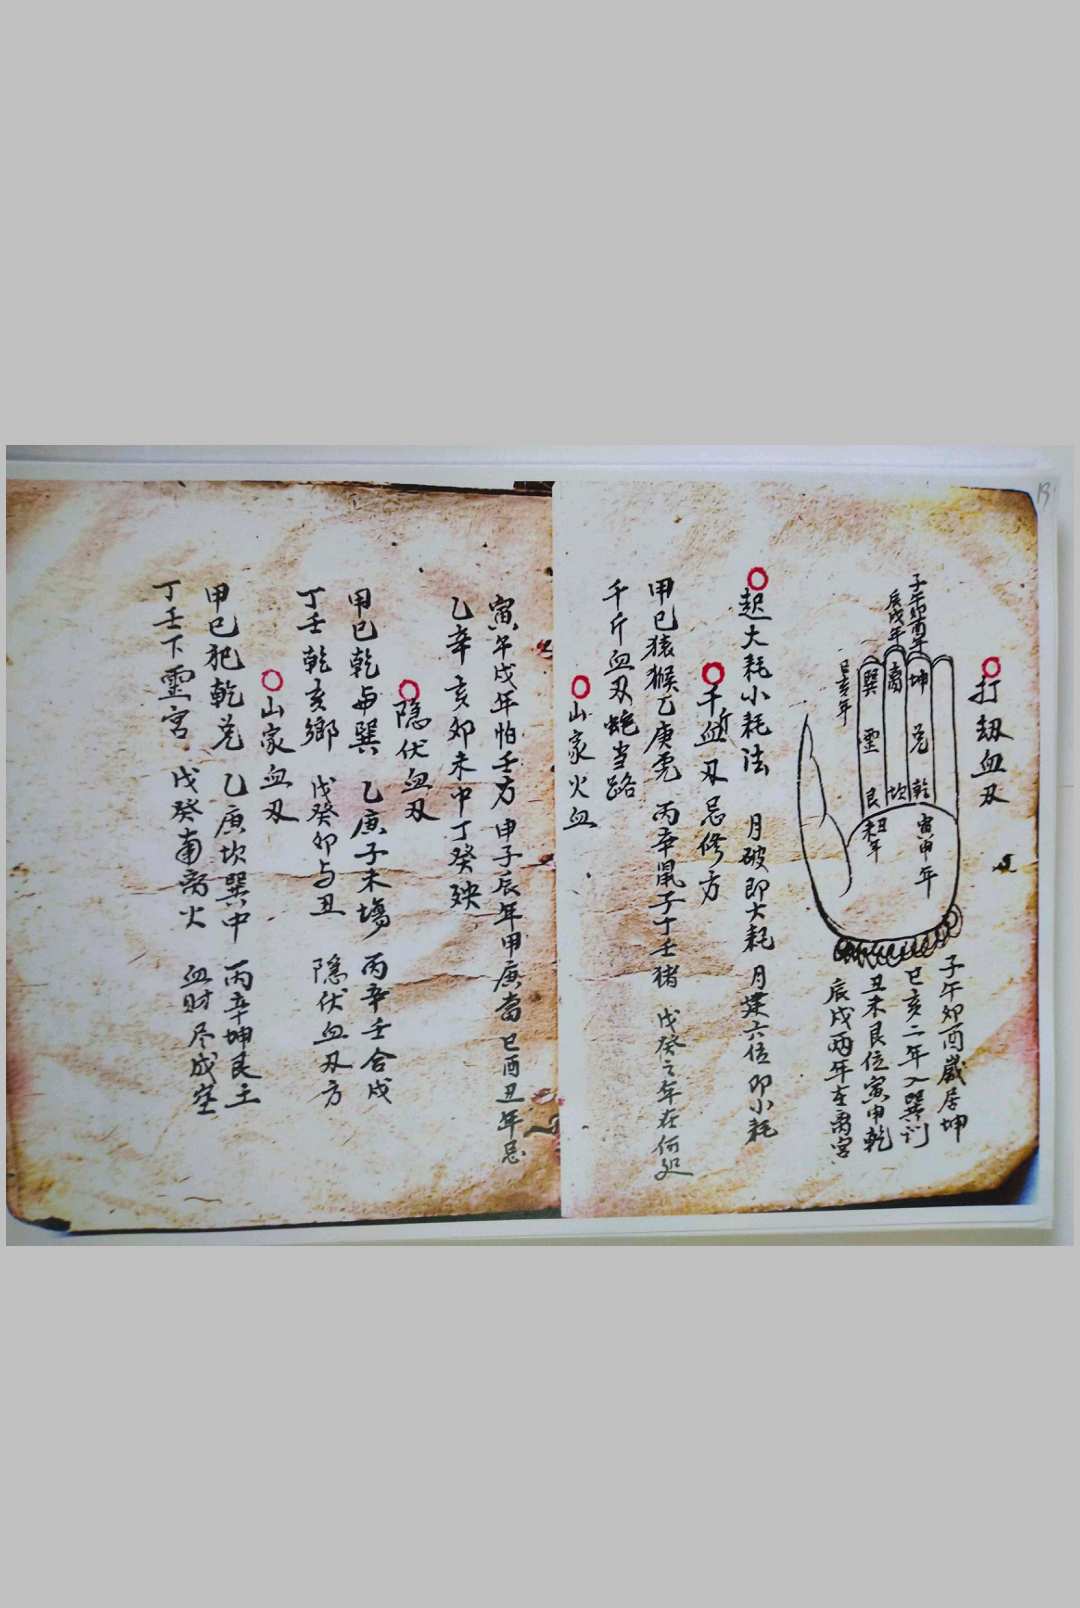 打劫血刃
子午卯酉年
辰戌年
巳亥年
坤
兑
乾
离
坎
巽
震
艮
丑未年
寅申年
子午卯酉歲居坤
巳亥二年入巽
丑未艮位寅申乾
辰戌两年在离宫
起大耗小耗法 月破即大耗 月建六位即小耗
千斤血刃忌修方
甲巳猿猴乙庚虎 丙辛鼠子丁壬猪 戊癸之年在何处
千斤血刃蛇当路
山家火血
寅午戌年怕壬方 申子辰年甲庚當 巳酉丑年忌
乙辛 亥卯未中丁癸殃
隐伏血刃
甲巳乾与巽 乙庚子未塲 丙辛壬合戌
丁壬乾亥鄉 戊癸卯与丑 隐伏血刃方
山家血刃
甲巳犯乾兑 乙庚坎巽中 丙辛坤艮土
丁壬下靈宫 戊癸南离火 血财尽成空